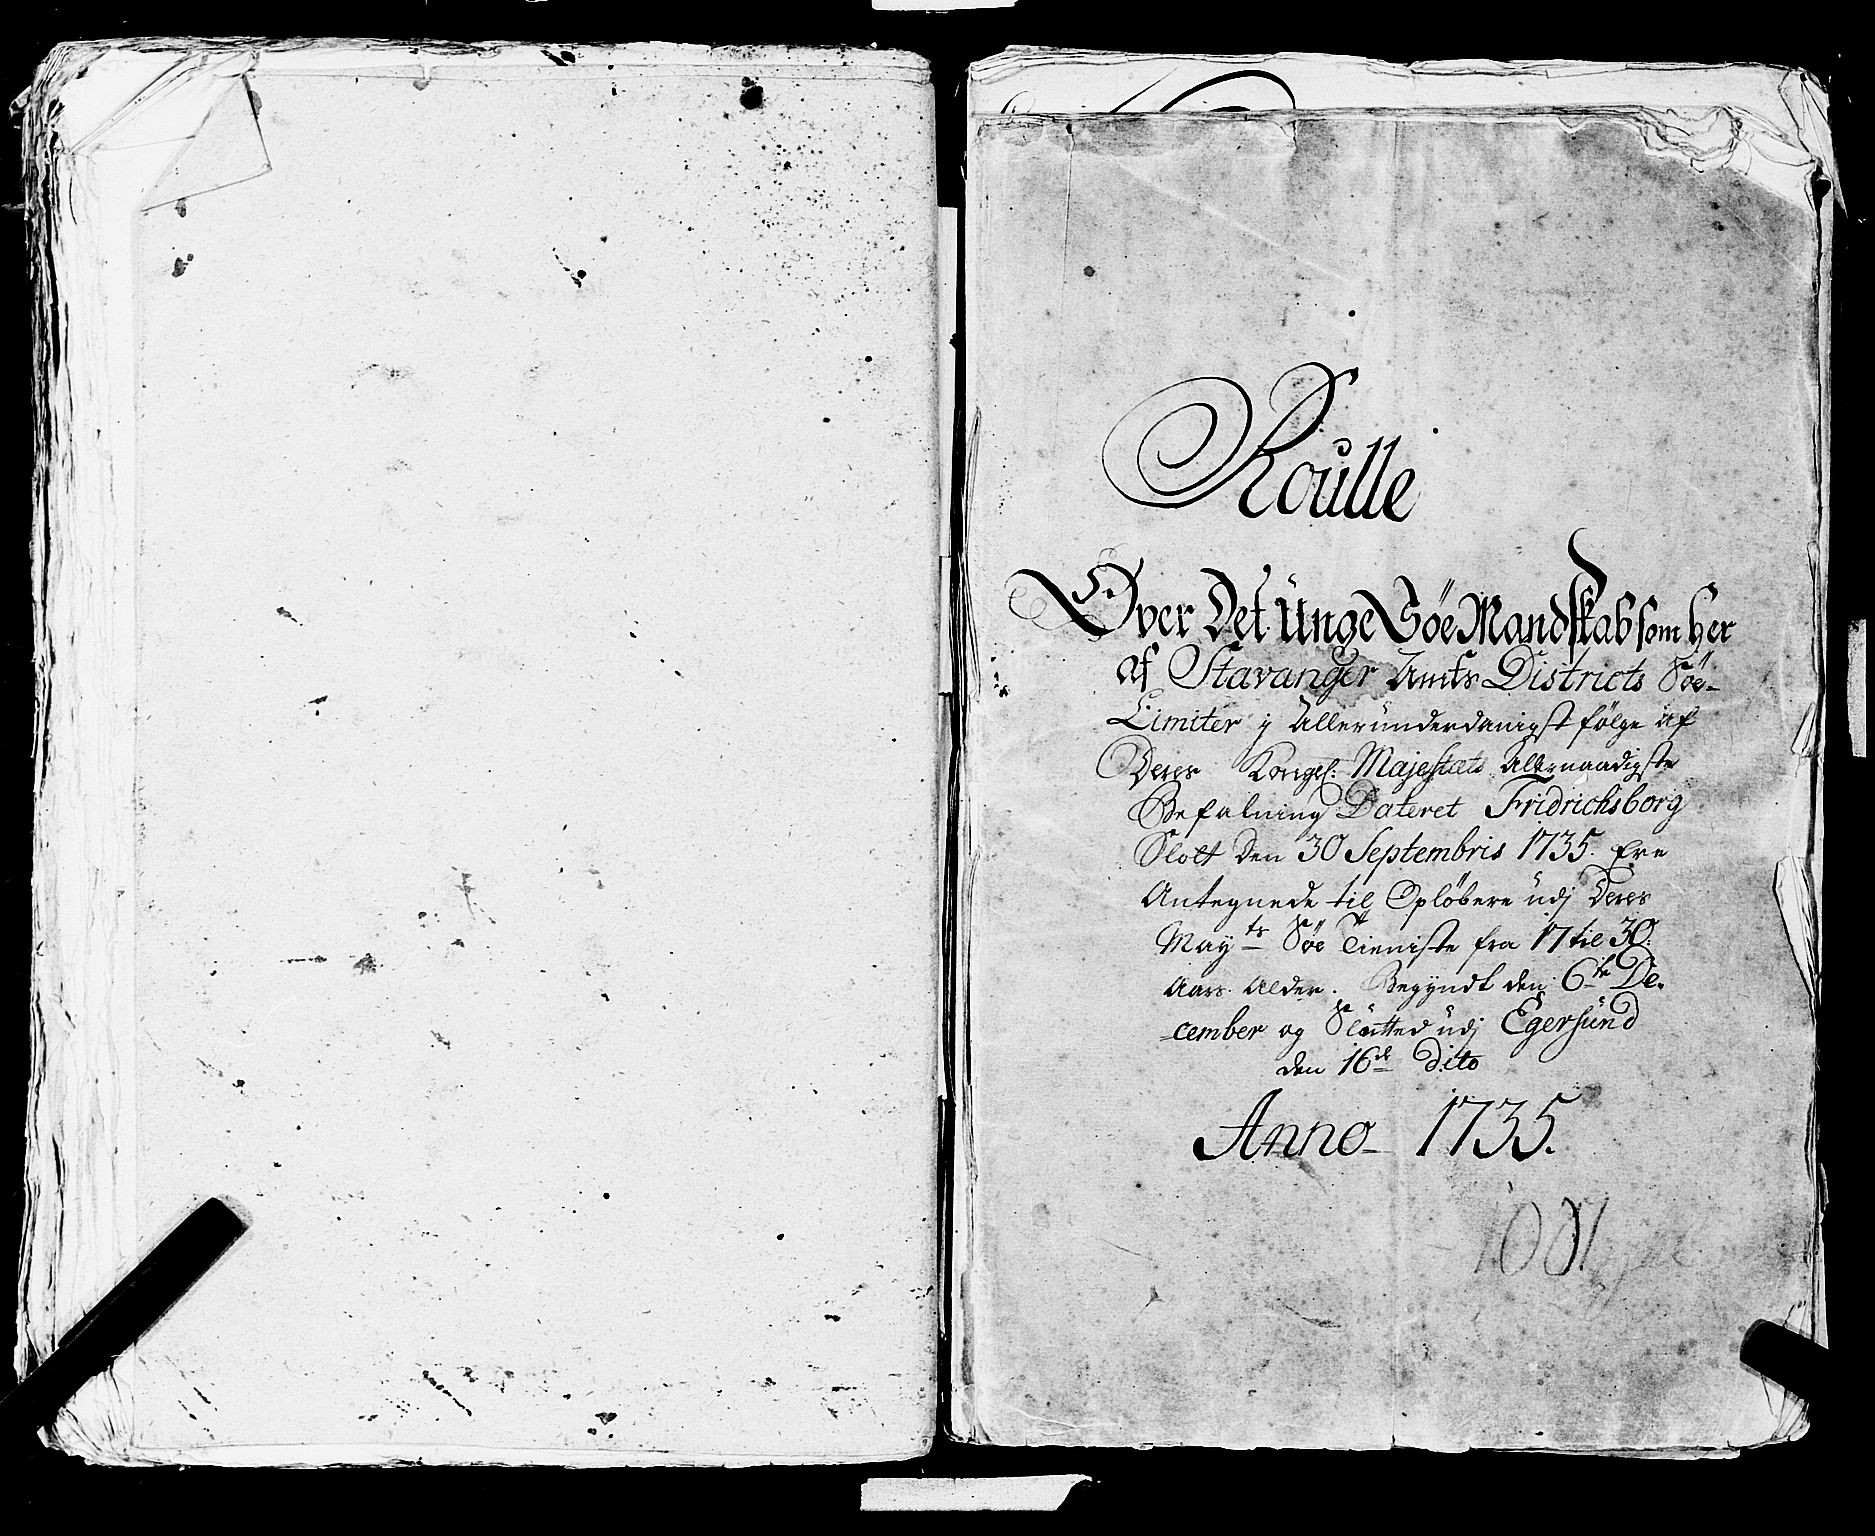 Roulle
Over Det Unge Söe Mandskab som her
af Stavanger Amts Districts Söe-
Limiter i Allerunderdanigst følge af
Deres Kongel: Majestæts Allernaadigste
Befalning Dateret Fridrichsborg
Slott den 30 Septembris 1735. Ere
Antegnede til Opløbere udj Deres
Mayts Söe Tieniste fra 17 til 30:
Aars Alder. Begyndt den 6te De-
cember og Slutted udj Egersund
den 16de Dito
Anno 1735.